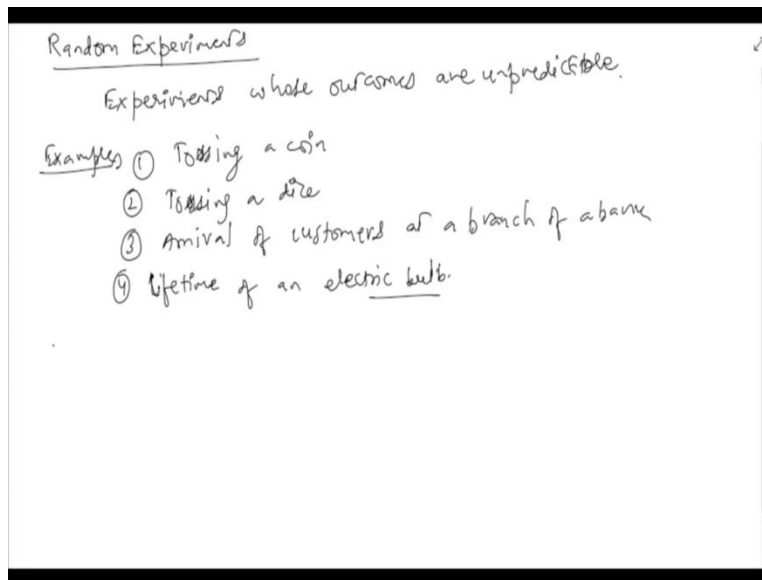 Random Experiments
Experiments whose outcomes are unpredictable.
Examples ① Tossing a coin
② Tossing a dice
③ Arrival of customers at a branch of a bank
④ Lifetime of an electric bulb.